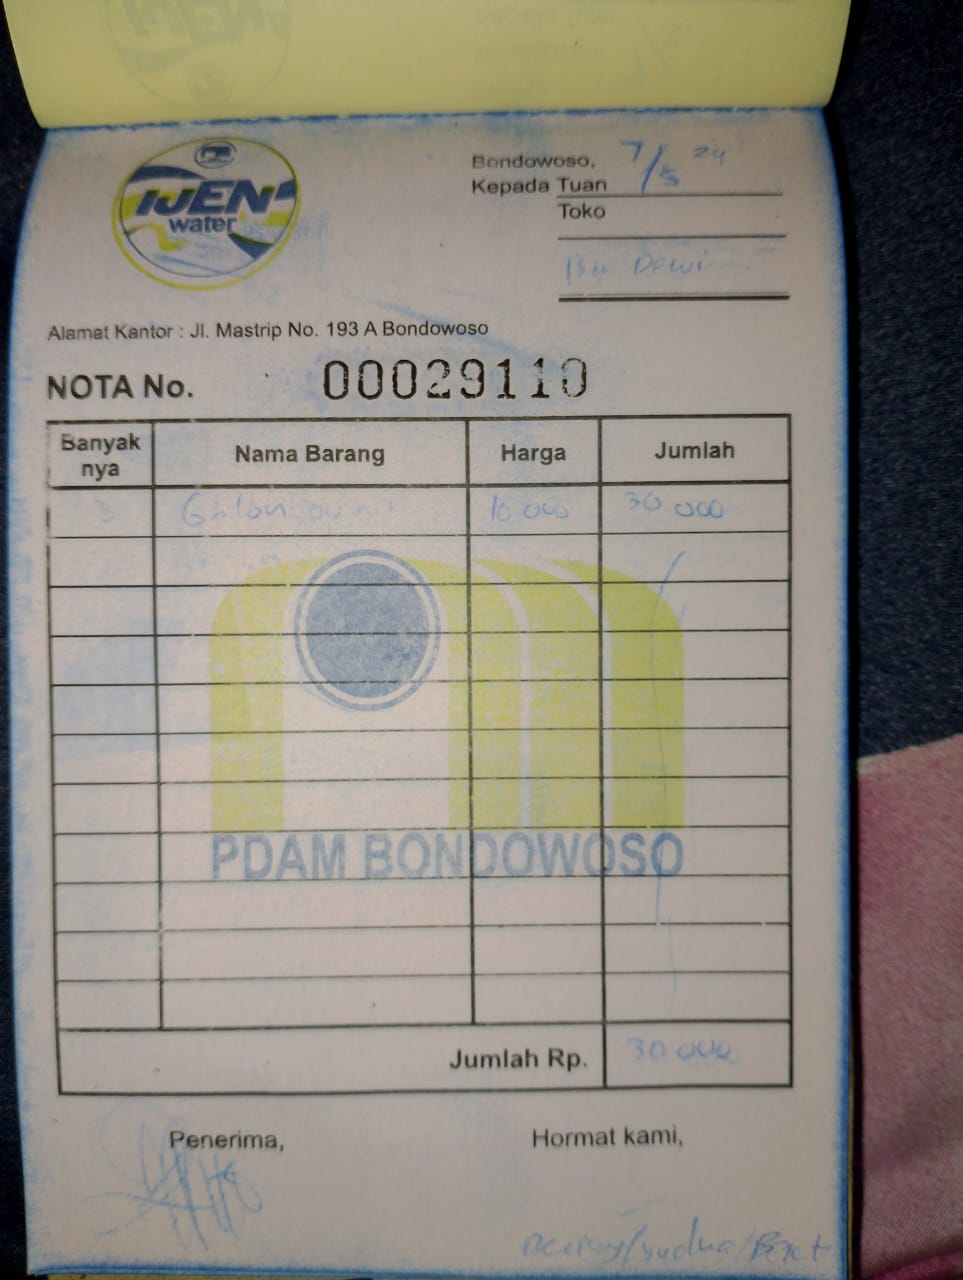 IJEN
water
Bondowoso, 7/5 24
Kepada Tuan
Toko
Bu Dewi
Alamat Kantor : Jl. Mastrip No. 193 A Bondowoso
NOTA No. 00029110
Banyak nya Nama Barang Harga Jumlah
3 Galon 10.000 30 000
PDAM BONDOWOSO
Jumlah Rp. 30 000
Penerima, Hormat kami,